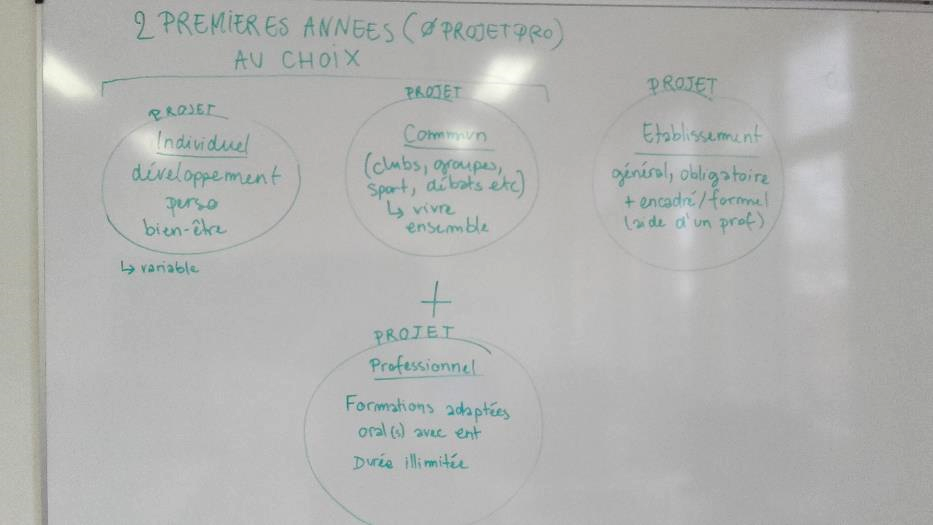 2 PREMIERES ANNEES (Ø PROJET PRO)
AU CHOIX
PROJET
Individuel
développement
perso
bien-être
↳ variable
PROJET
Commun
(clubs, groupes,
sport, débats etc)
↳ vivre
ensemble
PROJET
Etablissement
général, obligatoire
+ encadré/formel
(aide d'un prof)
+
PROJET
Professionnel
Formations adaptées
oral(s) avec ent
Durée illimitée